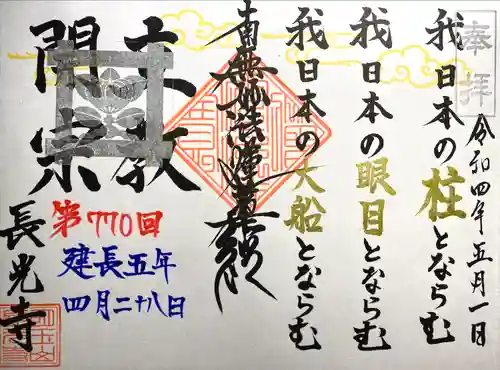 奉拝
令和四年五月一日
我日本の柱とならむ
我日本の眼目とならむ
我日本の大船とならむ
南無妙法蓮華経
立教
開宗
第770回
建長五年
四月二十八日
長光寺